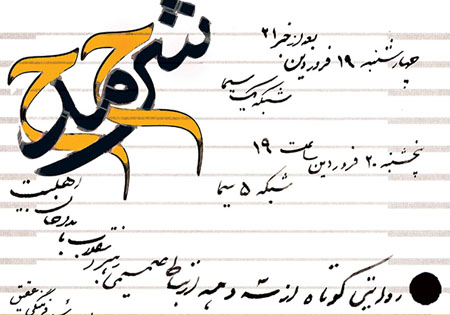 شرح مدح
بعد از خبر ۲۱
چهارشنبه ۱۹ فروردین
شبکه یک سیما
پنجشنبه ۲۰ فروردین ساعت ۱۹
شبکه ۵ سیما
روایتی کوتاه از سه دهه ارتباط صمیمی رهبر
انقلاب با
مداحان
اهلبیت
فرهنگی